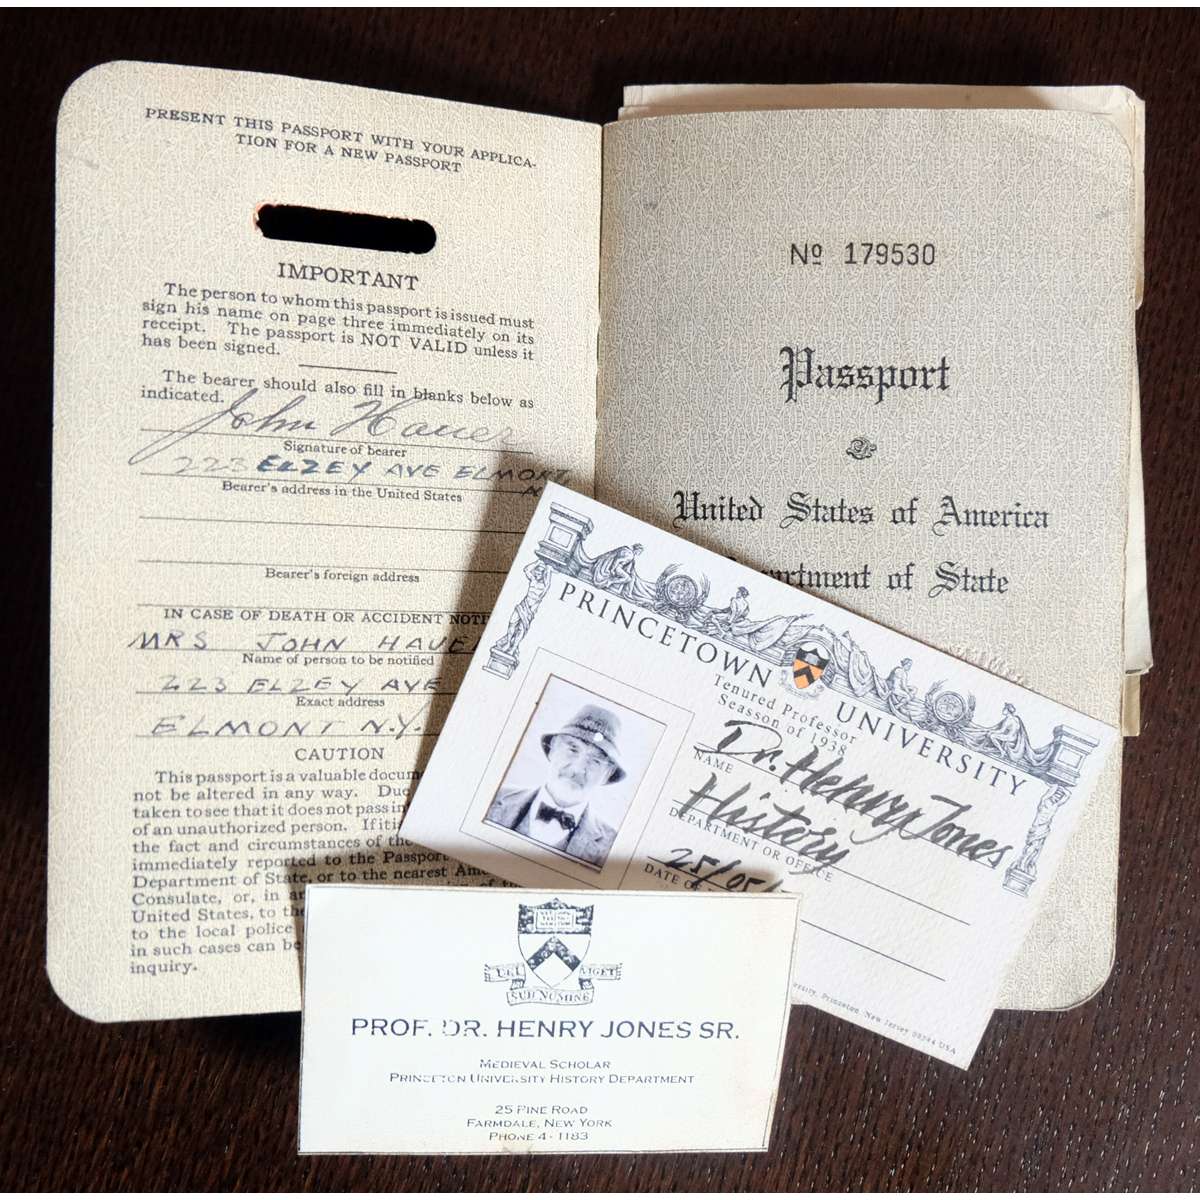 PRESENT THIS PASSPORT WITH YOUR APPLICA-
TION FOR A NEW PASSPORT
IMPORTANT
The person to whom this passport is issued must
sign his name on page three immediately on its
receipt. The passport is NOT VALID unless it
has been signed.
The bearer should also fill in blanks below as
indicated.
John Hauer
Signature of bearer
223 ELZEY AVE ELMONT
Bearer's address in the United States
Bearer's foreign address
IN CASE OF DEATH OR ACCIDENT NOTI
MRS JOHN HAUE
Name of person to be notified
223 ELZEY AVE
Exact address
ELMONT N.Y.
CAUTION
This passport is a valuable docum
not be altered in any way. Due
taken to see that it does not pass in
of an unauthorized person. If it i
the fact and circumstances of the
immediately reported to the Passport
Department of State, or to the nearest Ame
Consulate, or, in
United States, to the
to the local police
in such cases can be
inquiry.
Nº 179530
Passport
United States of America
rtment of State
PRINCETOWN UNIVERSITY
Tenured Professor
Seasson of 1938
Dr. Henry Jones
NAME
History
DEPARTMENT OR OFFICE
25/05/
DATE OF
ersity, Princeton New Jersey 08544 USA
DEI VIGET
SUB NUMINE
PROF. DR. HENRY JONES SR.
MEDIEVAL SCHOLAR
PRINCETON UNIVERSITY HISTORY DEPARTMENT
25 PINE ROAD
FARMDALE, NEW YORK
PHONE 4 - 1183